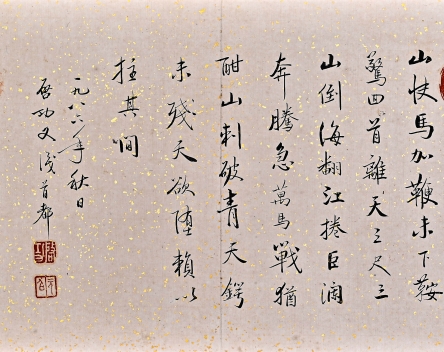 山快馬加鞭未下鞍
驚回首離天三尺三
山倒海翻江捲巨瀾
奔騰急萬馬戰猶
酣山刺破青天鍔
未殘天欲堕賴以
拄其間
一九八六年秋日
启功 首都